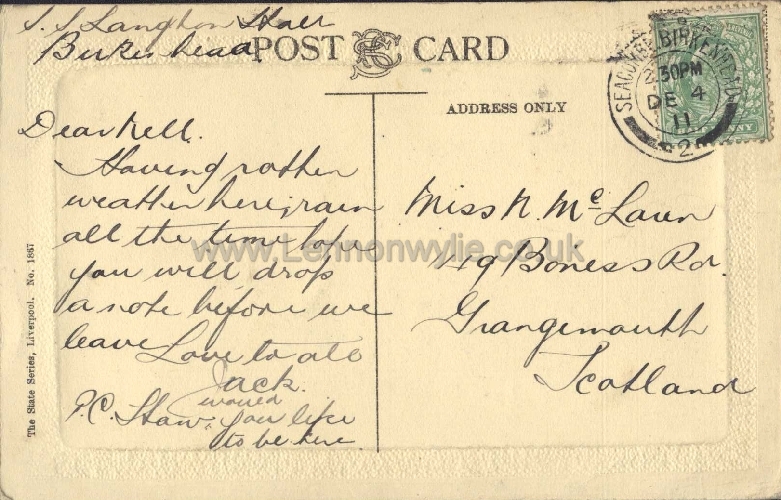 S.S Langton Hall
Birkenhead
POST CARD
ADDRESS ONLY
SEACOMBE BIRKENHEAD
2.30PM
DE 4
11
Dear Nell.
Having rotten
weather here, rain
all the time hope
you will drop
a note before we
leave Love to all
Jack.
P.C. Shaw: would
you like
to be here
Miss N. McLaren
49 Boness Rd.
Grangemouth
Scotland
The State Series, Liverpool. No. 1867
www.Lennonwylie.co.uk